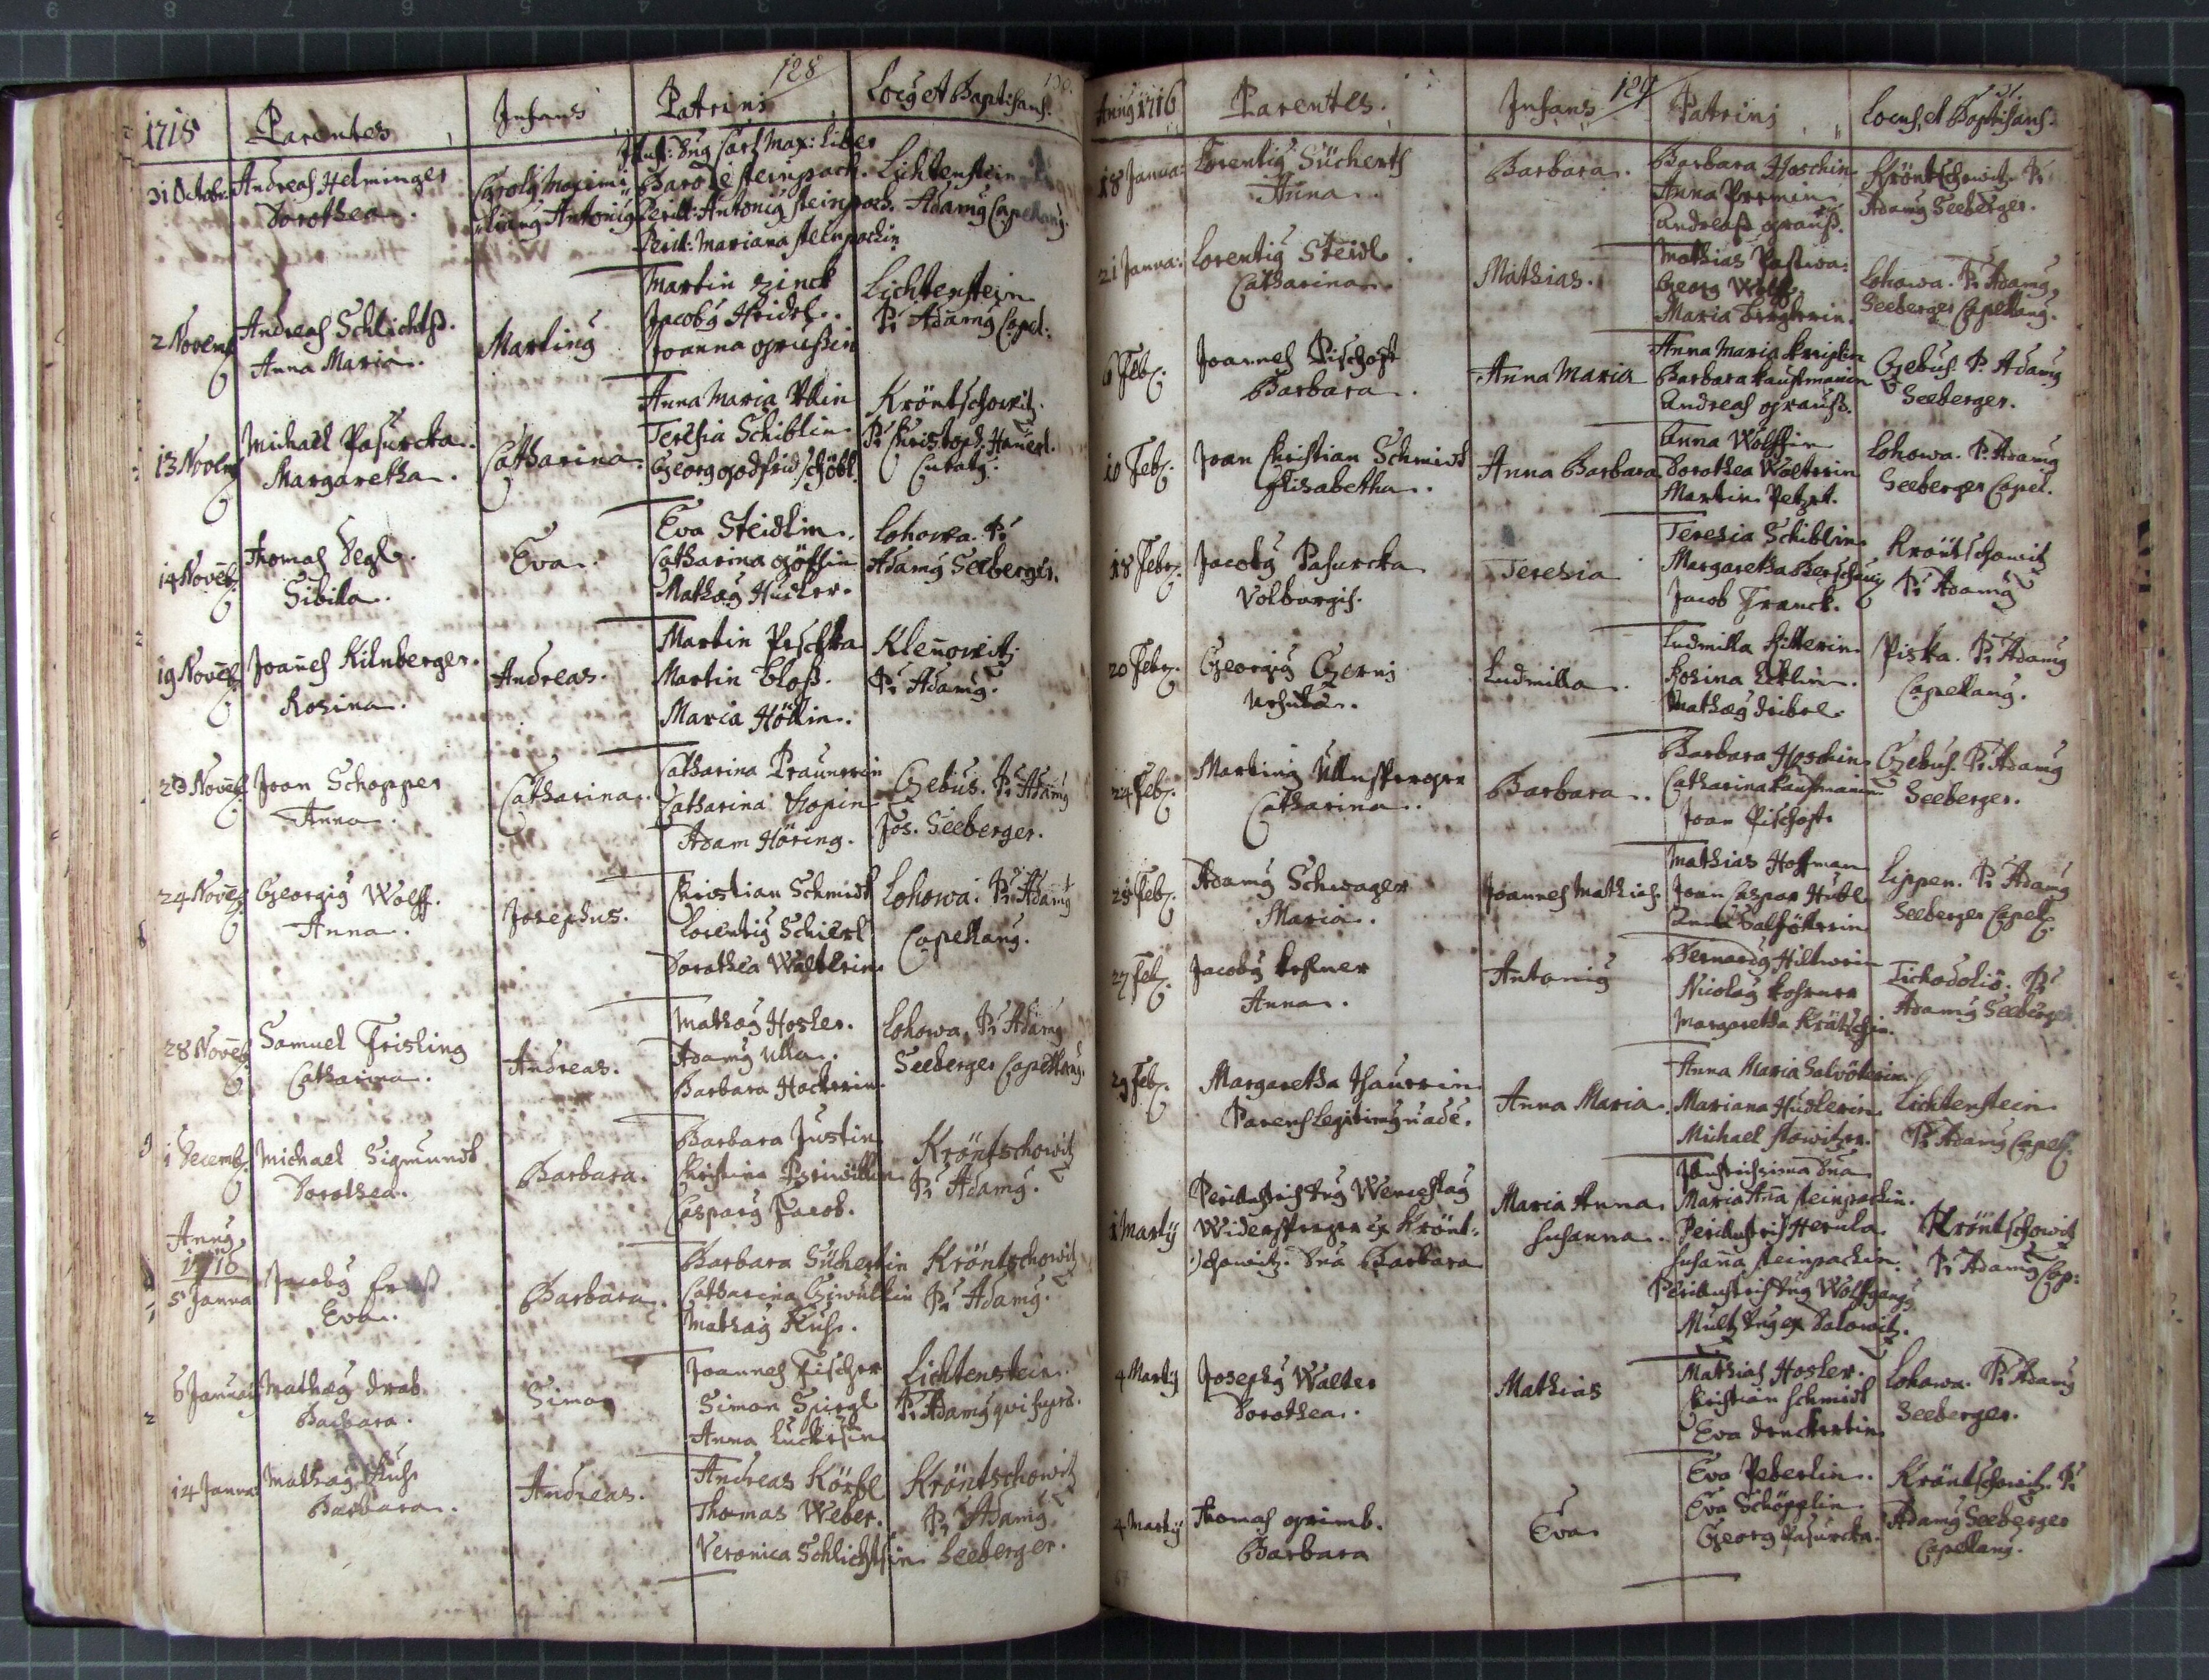 128
1715 Parentes Infans Patrini Locus et Baptisans
31 Octob: Andreas Helminger Dorothea. Carolus Maximilianus Antonius
Illust: Dnus Carl Max: Liber
Baro de Steinpach.
Perill: Antonius Steinpach.
Perill: Mariana Steinpachin
Lichtenstein
Adamus Capellanus.
2 Novemb Andreas Schlichts.
Anna Maria.
Martinus
Martin Zinck
Jacobus Heidl.
Joanna
Lichtenstein
Pr Adamus Capel:
13 Novem Michael Pasurcka.
Margaretha.
Catharina.
Anna Maria Ullin
Teresia Schiblin
Georg Godfrid Schöbl.
Kröntschowitz.
Pr Christoph. Hanerl.
Curatus.
14 Noveb. Thomas Vegl.
Sibilla.
Eva.
Eva Steidlin.
Catharina Göttlin
Mathæus Hudler.
Lohowa. Pr
Adamus Seeberger.
19 Noveb Joanes Kilnberger.
Rosina.
Andreas.
Martin Peschka
Martin Bloss.
Maria Höllin.
Klenowitz
Pr Adamus.
23 Noveb. Joan Schopper
Anna.
Catharina.
Catharina Praunerin
Catharina
Adam Höring.
Czebus. Pr Adamus
Jos. Seeberger.
24 Noveb. Georgius Wolff.
Anna.
Josephus.
Christian Schmidt
Lorentius Schierl
Dorothea Walterin
Lohowa. Pr Adamus
Capellanus.
28 Noveb. Samuel Frisling
Catharina.
Andreas.
Mathæus Hosler.
Adamus Ulla.
Barbara Hackerin.
Lohowa. Pr Adamus
Seeberger Capellanus.
1 Decemb. Michael Sigmundt
Dorothea.
Barbara.
Barbara Justin
Christina
Casparus Jacob.
Kröntschowitz
Pr Adamus.
Annus
1716
5 Janua Jacobus
Eva.
Barbara.
Barbara Süchertin
Catharina
Mathæus Kuhs.
Kröntschowitz
Pr Adamus.
6 Januarij Mathæus Drab.
Barbara.
Simon
Joannes Fischer
Simon Spirgl
Anna Luckesin
Lichtenstein.
Pr Adamus qui supra.
14 Janua: Mathæus Kuhs
Barbara.
Andreas.
Andreas Körbl
Thomas Weber.
Veronica Schlichtsin
Kröntschowitz
Pr Adamus
Seeberger.
129
Annus 1716 Parentes. Infans Patrini Locus, et Baptisans.
18 Janua: Lorentius Süchert
Anna.
Barbara.
Barbara Hoschin
Anna
Andreas
Kröntschowitz Pr
Adamus Seeberger.
21 Janua: Lorentius Steidl.
Catharina.
Mathias.
Mathias
Georg Wolff.
Maria
Lohowa. Pr Adamus
Seeberger Capellanus.
6 Feb. Joannes Pischoff
Barbara.
Anna Maria
Anna Maria
Barbara Kaufmanin
Andreas
Czebus. P. Adamus
Seeberger.
10 Feb. Joan Christian Schmidt
Elisabetha.
Anna Barbara
Anna Wolffin
Dorothea Walterin
Martin Petzet.
Lohowa. P. Adamus
Seeberger Capel.
18 Febr. Jacobus Pasurcka
Volburgis.
Teresia
Teresia Schiblin
Margaretha
Jacob Franck.
Kröntschowitz
Pr Adamus
20 Febr. Georgius Czerni
Ursula.
Ludmilla.
Ludmilla Hitterin
Rosina
Mathæus
Piska. Pr Adamus
Capellanus.
24 Feb. Martinus
Catharina.
Barbara.
Barbara Hoschin
Catharina Kaufmanin
Joan Pischoff.
Czebus. Pr Adamus
Seeberger.
25 Feb. Adamus Schwager
Maria.
Joannes Mathias.
Mathias Hoffman
Joan Caspar Hübl
Anna
Lippen. Pr Adamus
Seeberger Capel.
27 Feb. Jacobus
Anna.
Antonius
Bernardus
Nicolaus
Margaretha Krätschin.
Tichodolio. Pr
Adamus Seeberger
29 Feb. Margaretha
Anna Maria.
Anna Maria Salvöterin.
Mariana Hudlerin
Michael
Lichtenstein
Pr Adamus Capel.
1 Martij Perillustris Dnus Wenceslaus
Widersperger ex Krönt:
schowitz. Dna Barbara
Maria Anna
Susanna.
Illustrissima Dna
Maria Ana Steinpachin.
Perillustris Herula
Susana Steinpachin.
Perillustris Dnus Wolffgangus
Multz Dnus ex Dalowitz.
Kröntschowitz
Pr Adamus Cap:
4 Martij Josephus Walter
Dorothea.
Mathias
Mathias Hosler.
Christian Schmidt
Eva
Lohowa. Pr Adamus
Seeberger.
4 Martij Thomas
Barbara
Eva
Eva Peberlin.
Eva Schöpplin.
Georg Pasurcka.
Kröntschowitz. Pr
Adamus Seeberger
Capellanus.